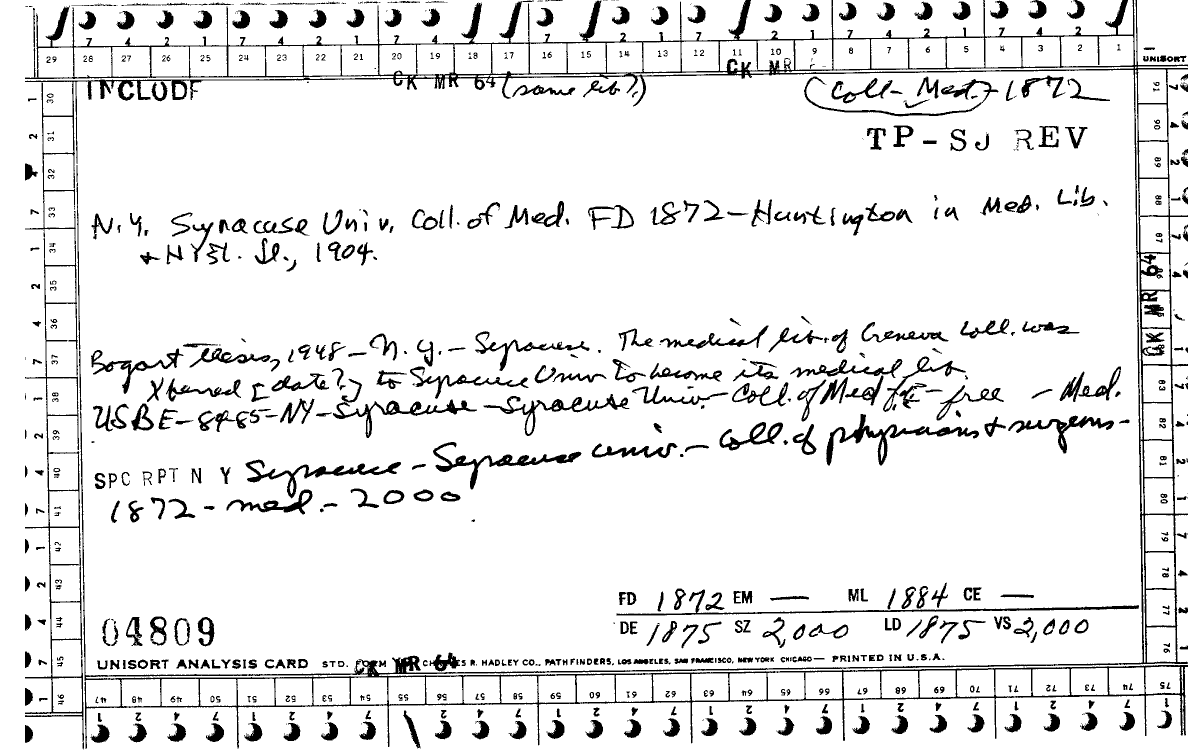 29 28 27 26 25 24 23 22 21 20 19 18 17 16 15 14 13 12 11 10 9 8 7 6 5 4 3 2 1
UNISORT
INCLUDE CK MR 64 (same lib?) CK MR Coll-Med.-1872
TP-SJ REV
N.Y. Syracuse Univ. Coll. of Med. FD 1872-Huntington in Med. Lib.
1904.
Bogart thesis, 1948-N.Y.-Syracuse. The medical lib. of Geneva Coll. was
Xferred [date?] to Syracuse Univ to become its medical lib.
USBE-8485-NY-Syracuse-Syracuse Univ-Coll. of Med free - Med.
SPC RPT N Y Syracuse-Syracuse univ.-Coll. of physicians & surgeons-
1872-med.-2000
FD 1872 EM — ML 1884 CE —
DE 1875 SZ 2,000 LD 1875 VS 2,000
04809
UNISORT ANALYSIS CARD STD. FORM CK MR 64 R. HADLEY CO., PATHFINDERS, LOS ANGELES, SAN FRANCISCO, NEW YORK CHICAGO— PRINTED IN U.S.A.
CK MR 64
47 48 49 50 51 52 53 54 55 56 57 58 59 60 61 62 63 64 65 66 67 68 69 70 71 72 73 74 75